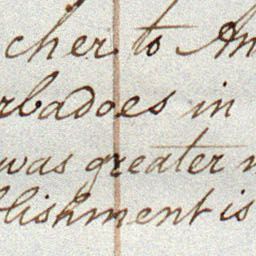 cher to An
rbadoes in
was greater
blishment is